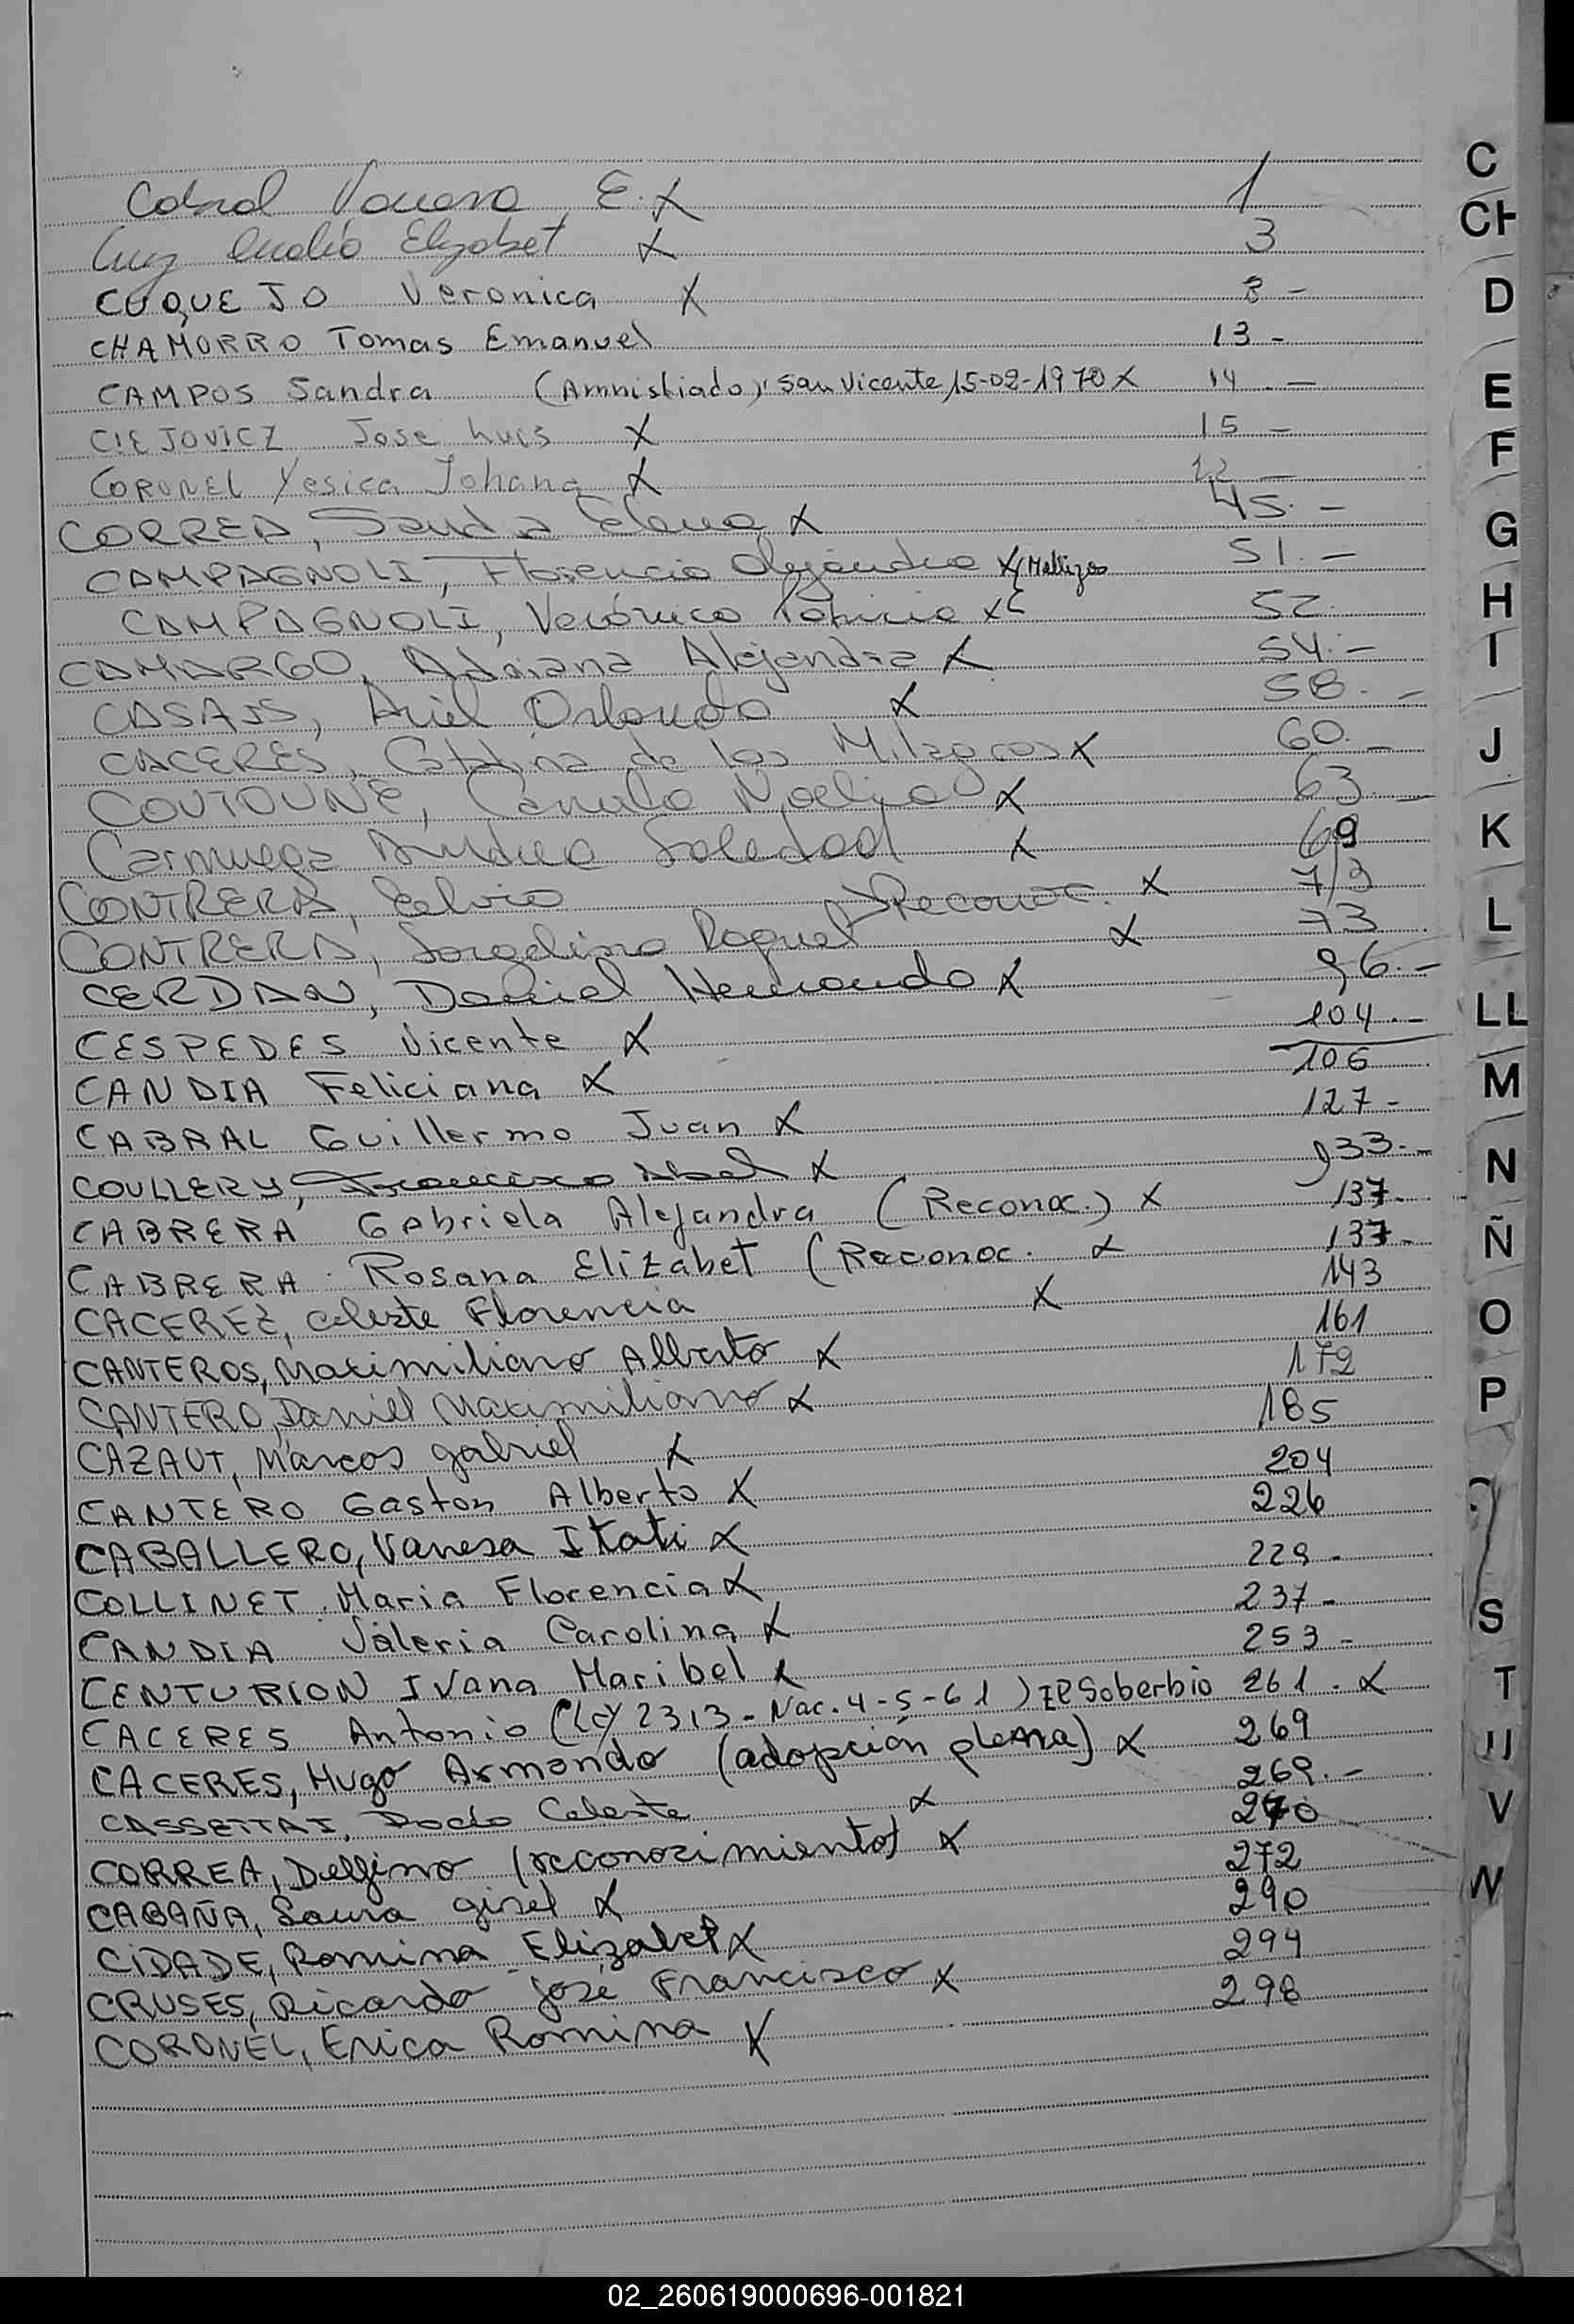 Cabral Vanesa E. X 1
Cruz Amalia Elizabet X 3
COQUEJO Veronica X 8 -
CHAMORRO Tomas Emanuel 13 -
CAMPOS Sandra (Amnistiado) San Vicente 15-02-1970 X 14 -
CIEJOVICZ Jose Luis X 15 -
CORONEL Yesica Johana X 22 -
CORREA, Sandra Elena X 45. -
CAMPAGNOLI, Florencia Alejandra X { Mellizas 51. -
CAMPAGNOLI, Verónica Patricia X 52.
CAMARGO, Adriana Alejandra X 54. -
CASAJS, Ariel Orlando X 58. -
CACERES, Catalina de los Milagros X 60. -
COUTOUNE, Canula Noelia X 63. -
Carmuega Andrea Soledad X 69
CONTRERA, Elvio Reconoc. X 7/3
CONTRERA, Jorgelina Raquel X 73
CERDAN, Daniel Hernando X 96. -
CESPEDES Vicente X 104. -
CANDIA Feliciana X 106
CABRAL Guillermo Juan X 127 -
COULLERY, Francisco Abel X 133. -
CABRERA Gabriela Alejandra (Reconoc.) X 137 -
CABRERA Rosana Elizabet (Reconoc. X 137 -
CACEREZ, Celeste Florencia X 143
CANTEROS, Maximiliano Alberto X 161
CANTERO, Daniel Maximiliano X 172
CAZAUT, Marcos gabriel X 185
CANTERO Gaston Alberto X 204
CABALLERO, Vanesa Itati X 226
COLLINET Maria Florencia X 229 -
CANDIA Valeria Carolina X 237 -
CENTURION Ivana Maribel X 253 -
CACERES Antonio (Ley 2313 - Nac. 4-5-61) El Soberbio 261. X
CACERES, Hugo Armando (adopción plena) X 269
CASSETTAI, Rocio Celeste X 269. -
CORREA, Delfino (reconocimiento) X 270
CABAÑA, Laura gisel X 272
CIDADE, Romina Elizabet X 290
CRUSES, Ricardo josé Francisco X 294
CORONEL, Erica Romina X 298
C
CH
D
E
F
G
H
I
J
K
L
LL
M
N
Ñ
O
P
S
T
U
V
W
02_260619000696-001821